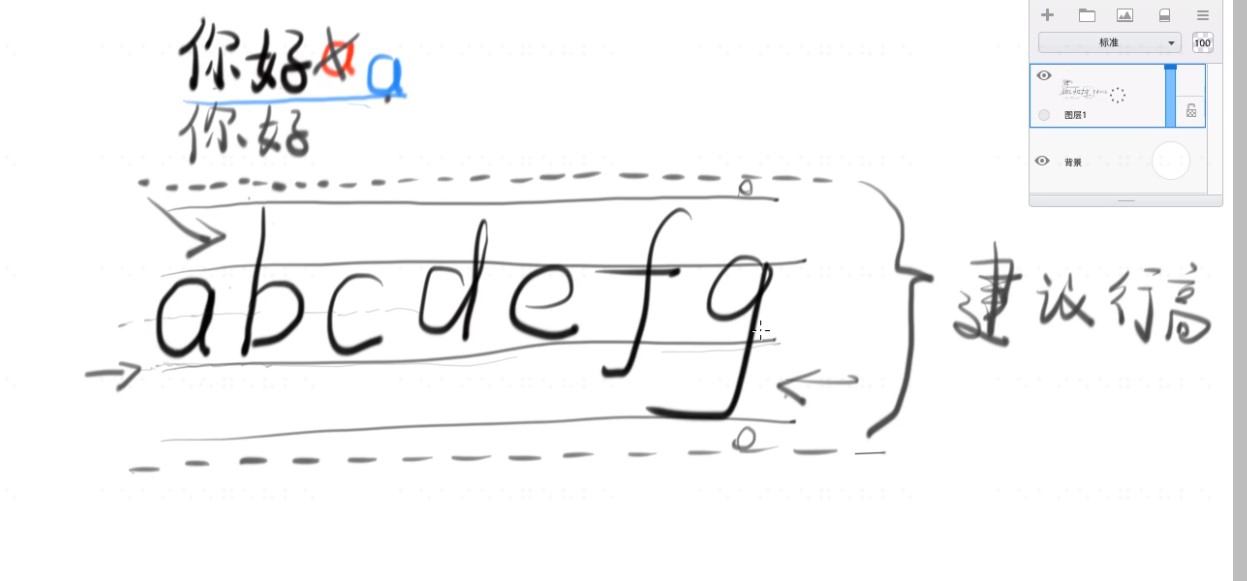 你好a a
你好
abcdefg
建议行高
标准
100
图层1
背景